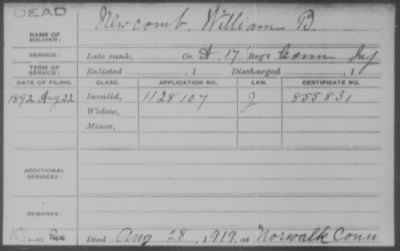 DEAD
NAME OF SOLDIER: Newcomb, William B.
SERVICE: Late rank, Co. A, 17 Reg't Conn Inf
TERM OF SERVICE: Enlisted , 1 Discharged , 1
DATE OF FILING. CLASS. APPLICATION NO. LAW. CERTIFICATE NO.
1892 Aug 22 Invalid, 1128107 J 855831
Widow,
Minor,
ADDITIONAL SERVICES:
REMARKS:
Died Aug 28, 1919, at Norwalk Conn